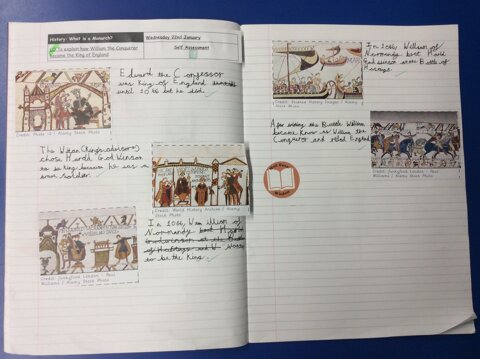 History: What is a Monarch?
Wednesday 22nd January
LO: To explain how William the Conqueror
became the King of England
Self Assessment
Edward the Confessor
was King of England
until 1066 but he died.
Stock Photo
The Witan (King's advisors)
chose Harold Godwinson
to be king because he was a
soldier.
Credit: World History Archive / Alamy
Stock Photo
In 1066, William of
Normandy beat Harold
Godwinson at the Battle
of Hastings and W
to be the King.
Credit: Junkyfunk London - Paul
Williams / Alamy Stock Photo
In 1066, William of
Normandy beat Harold
Godwinson at the Battle of
Hastings.
Credit: Science History Images / Alamy
Stock Photo
After winning the Battle William
became Know as William the
Conqueror and ruled England
Credit: Junkyfunk London - Paul
Williams / Alamy Stock Photo